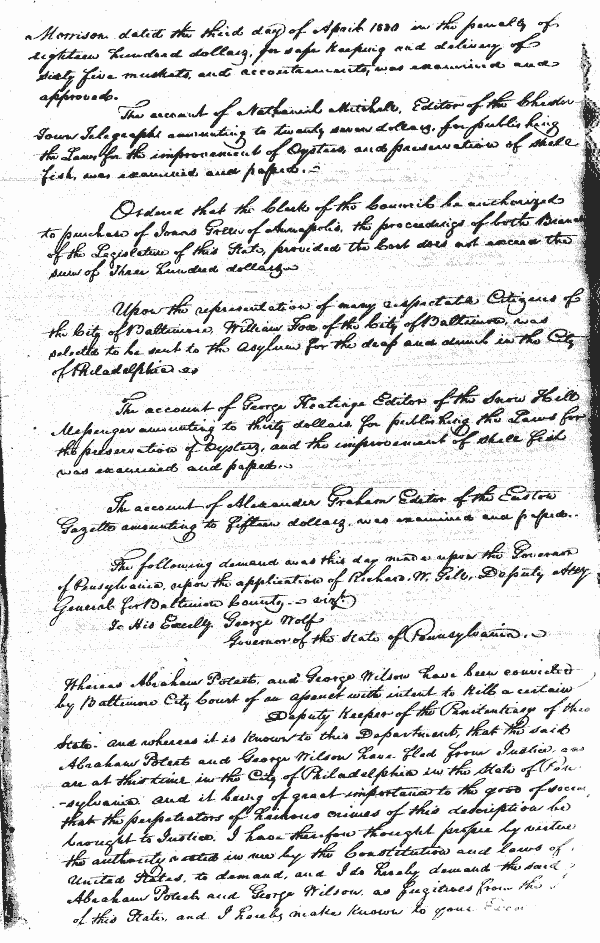 Morrison dated the third day of April 1830 in the penalty of
eighteen hundred dollars, for safe keeping and delivery of
sixty five muskets, and accoutrements, was examined and
approved.
The account of Nathaniel Mitchell, Editor of the Chester
Town Telegraph amounting to twenty seven dollars, for publishing
the Laws for the improvement of Oysters, and preservation of shell
fish, was examined and passed.
Ordered that the Clerk of the Council be authorized
to purchase of Jonas Green of Annapolis, the proceedings of both Branc
of the Legislature of this State, provided the Cost does not exceed the
sum of Three hundred dollars
Upon the representation of many respectable Citizens of
the City of Baltimore, William Fox of the City of Baltimore, was
selected to be sent to the Asylum for the deaf and dumb in the City
of Philadelphia
The account of George Keatinge Editor of the Snow Hill
Messenger amounting to thirty dollars for publishing the Laws for
the preservation of Oysters, and the improvement of shell fish
was examined and passed.
The account of Alexander Graham Editor of the Easton
Gazette amounting to fifteen dollars, was examined and passed.
The following demand was this day made upon the Governor
of Pensylvania, upon the application of Richard W. Gill, Deputy Atty
General for Baltimore County - vizt.
To His Excelly. George Wolf
Governor of the State of Pennsylvania.
Whereas Abraham Poteet, and George Wilson have been convicted
by Baltimore City Court of an assault with intent to kill a certain
Deputy Keeper of the Penitentiary of this
State. and whereas it is known to this Department, that the said
Abraham Poteet and George Wilson have fled from Justice, and
are at this time in the City of Philadelphia in the State of Pen
-sylvania. and it being of great importance to the good of socie
that the perpetrators of heinous crimes of this description be
brought to Justice. I have therefore thought proper by virtue
the authority vested in me by the Constitution and laws of
United States, to demand, and I do hereby demand the said
Abraham Poteet and George Wilson, as fugitives from the
of this State, and I hereby make known to your